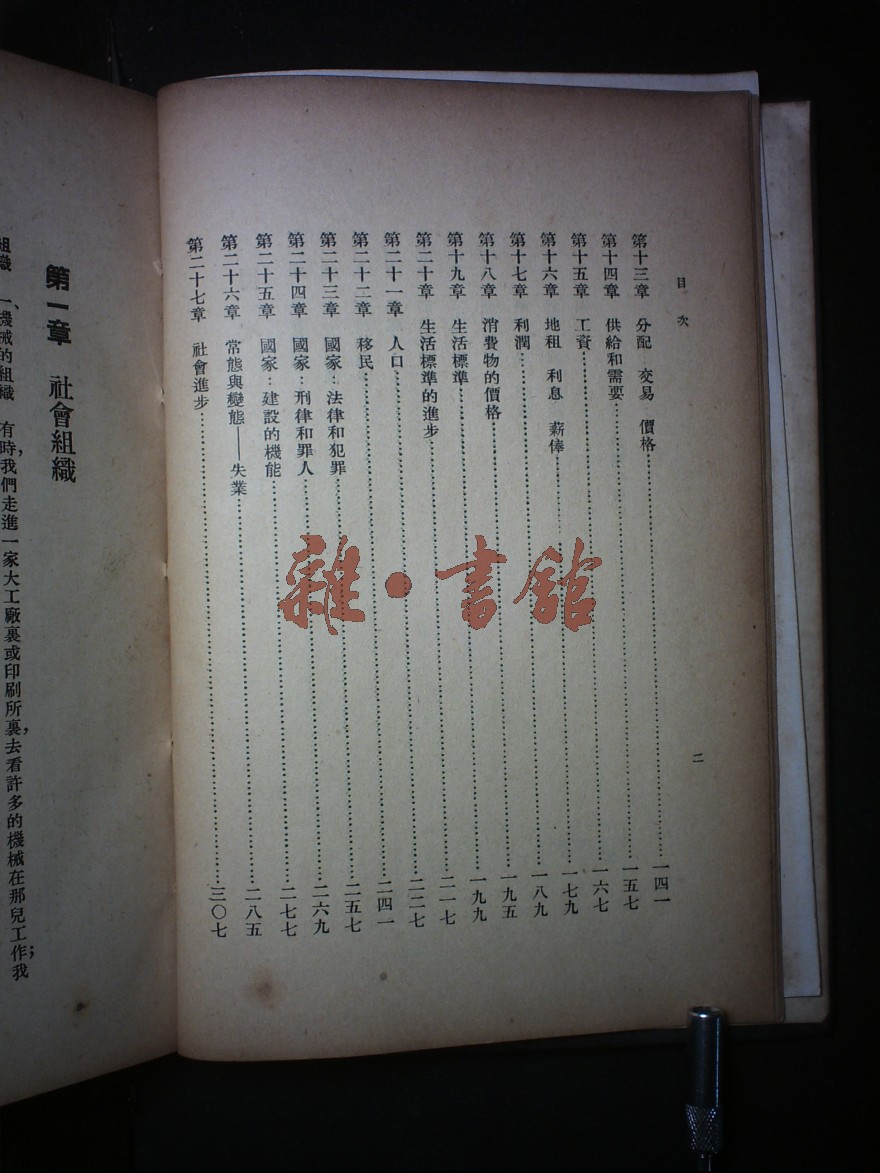 目次
第十三章 分配 交易 價格……一四一
第十四章 供給和需要……一五七
第十五章 工資……一六七
第十六章 地租 利息 薪俸……一七九
第十七章 利潤……一八九
第十八章 消費物的價格……一九五
第十九章 生活標準……一九九
第二十章 生活標準的進步……二一七
第二十一章 人口……二二七
第二十二章 移民……二四一
第二十三章 國家：法律和犯罪……二五七
第二十四章 國家：刑律和罪人……二六九
第二十五章 國家：建設的機能……二七七
第二十六章 常態與變態——失業……二八五
第二十七章 社會進步……三〇七
二
雜·書館
第一章 社會組織
組織 一、機械的組織 有時，我們走進一家大工廠裏或印刷所裏，去看許多的機械在那兒工作；我